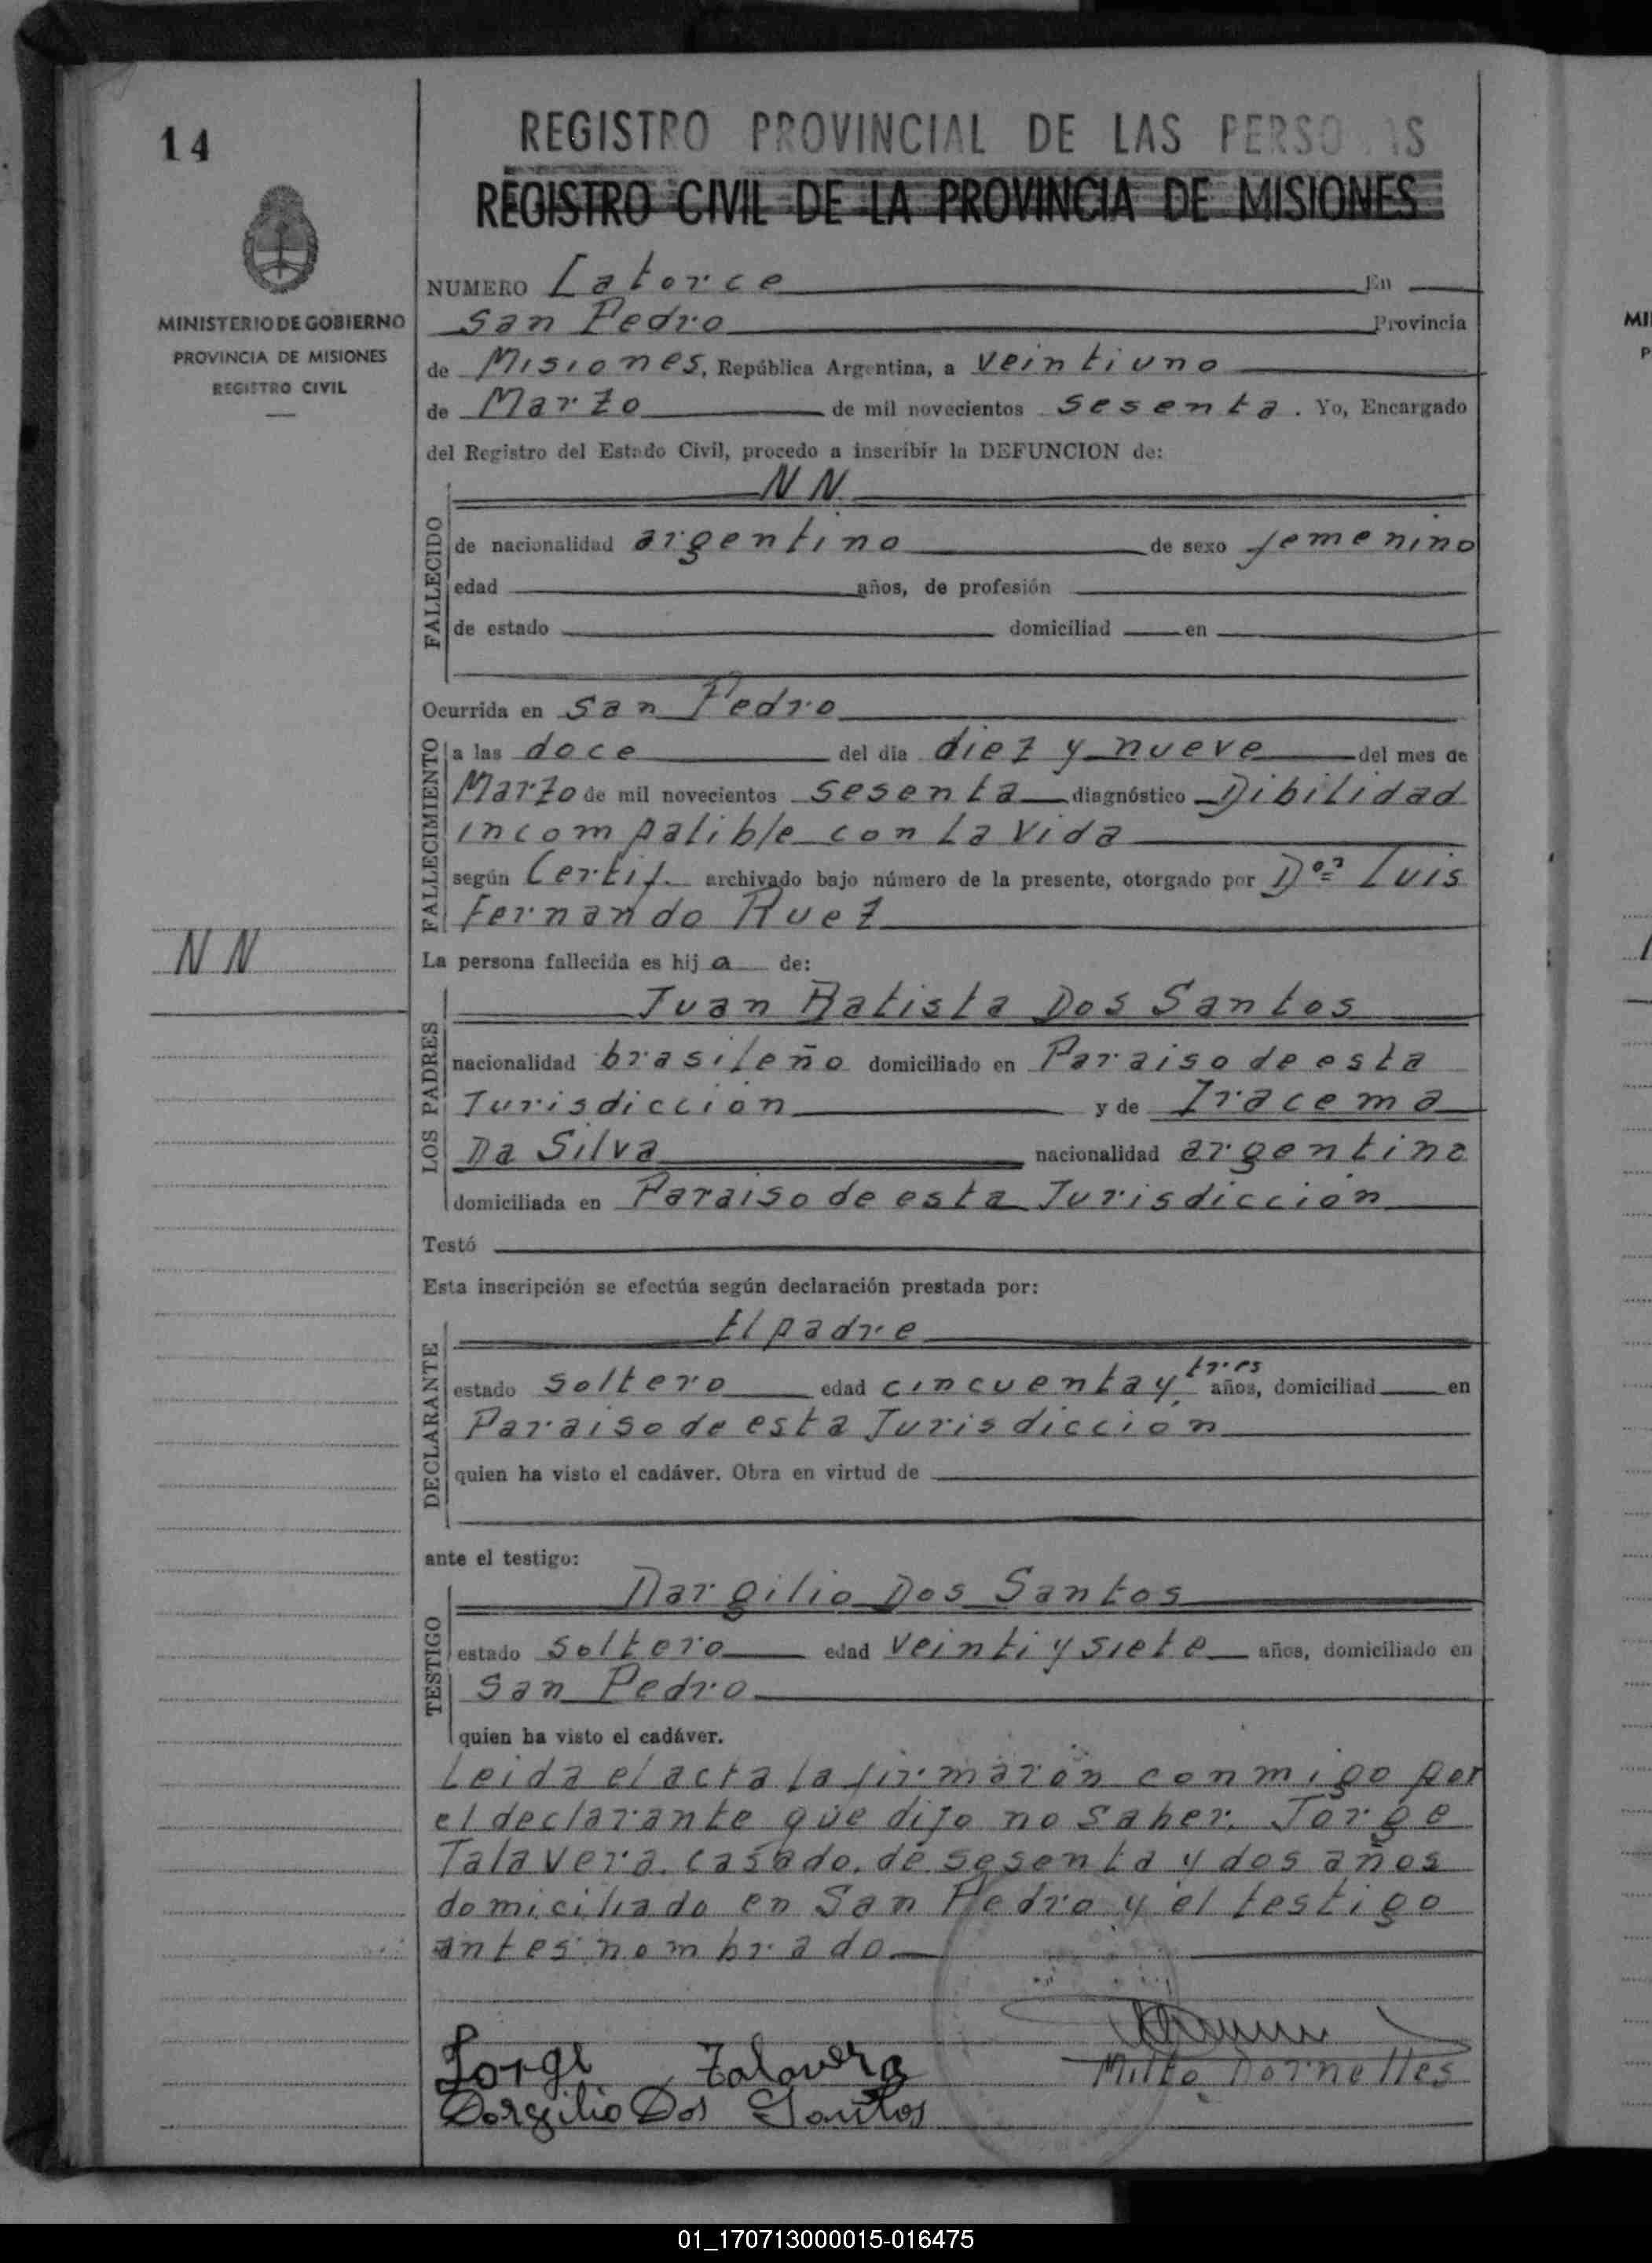 14
REGISTRO PROVINCIAL DE LAS PERSO AS
REGISTRO CIVIL DE LA PROVINCIA DE MISIONES
MINISTERIO DE GOBIERNO
PROVINCIA DE MISIONES
REGISTRO CIVIL
NUMERO Catorce En
San Pedro Provincia
de Misiones, República Argentina, a veintiuno
de Marzo de mil novecientos sesenta. Yo, Encargado
del Registro del Estado Civil, procedo a inscribir la DEFUNCION de:
N N
FALLECIDO
de nacionalidad argentino de sexo femenino
edad años, de profesión
de estado domiciliad en
Ocurrida en San Pedro
FALLECIMIENTO
a las doce del dia diez y nueve del mes de
Marzo de mil novecientos sesenta diagnóstico Dibilidad
incompatible con la vida
según Certif. archivado bajo número de la presente, otorgado por Dor Luis
Fernando Ruez
N N
La persona fallecida es hij a de:
LOS PADRES
Juan Batista Dos Santos
nacionalidad brasileño domiciliado en Paraiso de esta
Jurisdicción y de Iracema
Da Silva nacionalidad argentina
domiciliada en Paraiso de esta Jurisdicción
Testó
Esta inscripción se efectúa según declaración prestada por:
DECLARANTE
El padre
estado soltero edad cincuenta y tres años, domiciliad en
Paraiso de esta Jurisdicción
quien ha visto el cadáver. Obra en virtud de
ante el testigo:
TESTIGO
Dargilio Dos Santos
estado soltero edad veinti y siete años, domiciliado en
San Pedro
quien ha visto el cadáver.
Leida el acta la firmaron conmigo por
el declarante que dijo no saber. Jorge
Talavera. casado. de sesenta y dos años
domiciliado en San Pedro y el testigo
antes nombrado
Jorge Talavera
Milto Dornelles
Dorgilio Dos Santos
MI
P
01_170713000015-016475